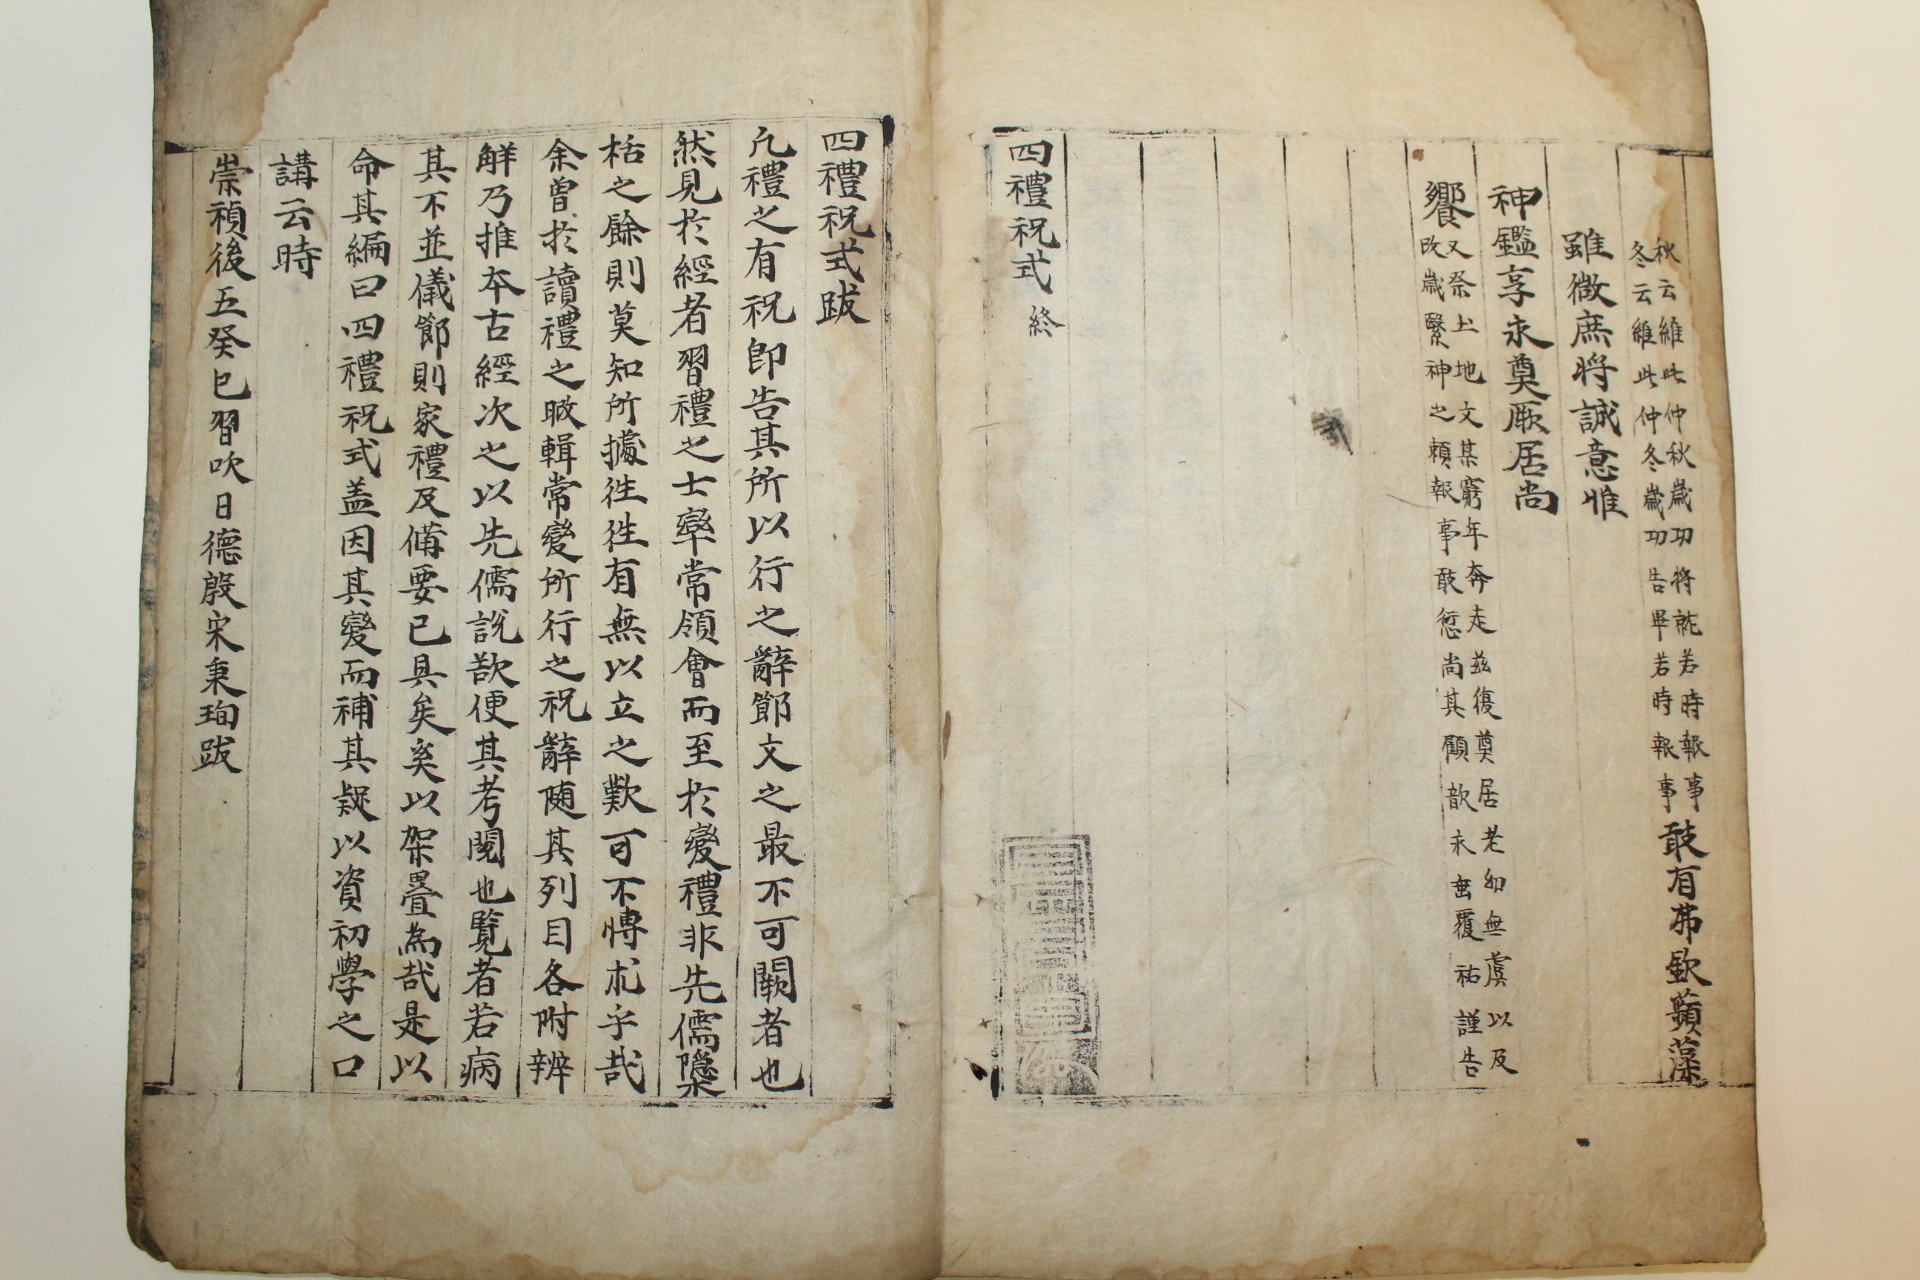 秋云維此仲秋歲功將就若時報事
冬云維此仲冬歲功告畢若時報事
敢有弗欽蘋藻
雖微庶將誠意惟
神鑑享永奠厥居尚
饗
又祭土地文某窮年奔走玆復奠居老幼無虞以及
改歲繄神之賴報事敢愆尚其顧歆永垂覆祐謹告
四禮祝式 終
四禮祝式跋
凢禮之有祝卽告其所以行之辭節文之最不可闕者也
然見於經者習禮之士率常領會而至於變禮非先儒隱
栝之餘則莫知所據徃徃有無以立之歎可不慱求乎哉
余曽於讀禮之暇輯常變所行之祝辭隨其列目各附辨
觧乃推本古經次之以先儒說歆便其考閱也覽者若病
其不並儀節則家禮及備要已具矣奚以架疊為哉是以
命其編曰四禮祝式盖因其變而補其疑以資初學之口
講云時
崇禎後五癸巳習吹日德殷宋秉珣跋